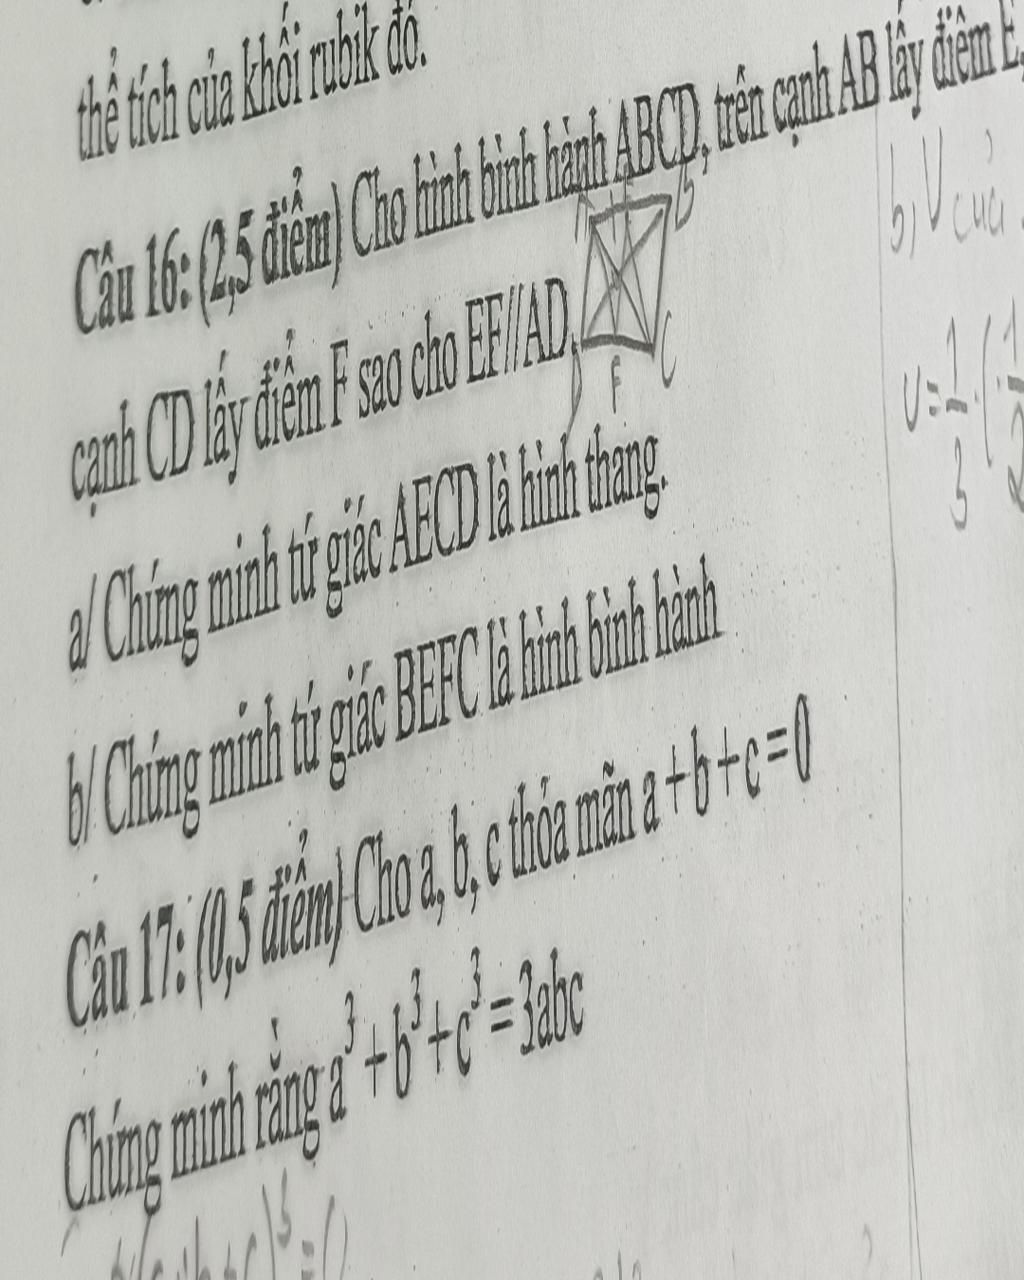 thể tích của khối rubik đó.
Câu 16: (2,5 điểm) Cho hình bình hành ABCD, trên cạnh AB lấy điểm E,
cạnh CD lấy điểm F sao cho EF//AD.
B
D F C
a/ Chứng minh tứ giác AECD là hình thang.
b/ Chứng minh tứ giác BEFC là hình bình hành
Câu 17: (0,5 điểm) Cho a, b, c thỏa mãn a + b + c = 0
Chứng minh rằng a³ + b³ + c³ = 3abc
b, V của